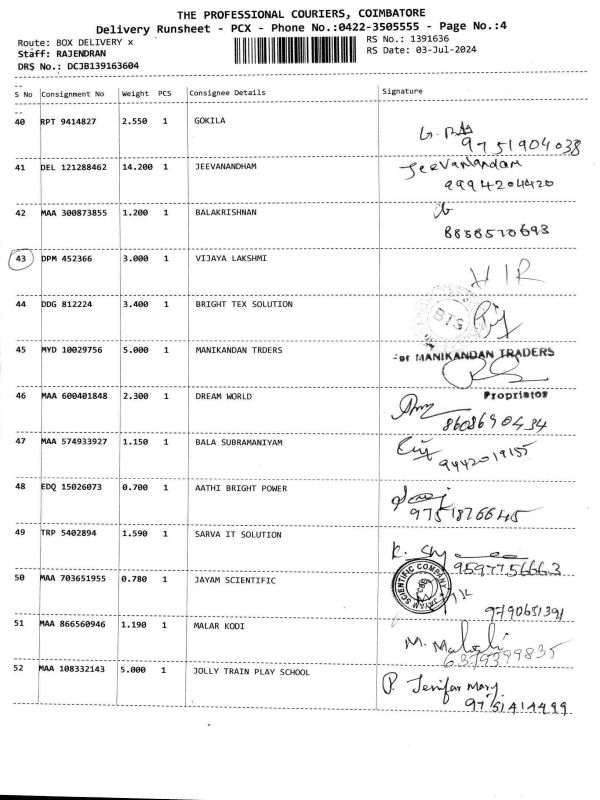 THE PROFESSIONAL COURIERS, COIMBATORE
Delivery Runsheet - PCX - Phone No.:0422-3505555 - Page No.:4
Route: BOX DELIVERY x RS No.: 1391636
Staff: RAJENDRAN RS Date: 03-Jul-2024
DRS No.: DCJB139163604
S No Consignment No Weight PCS Consignee Details Signature
40 RPT 9414827 2.550 1 GOKILA
9751904038
41 DEL 121288462 14.200 1 JEEVANANDHAM Jeevanandam
9994204420
42 MAA 300873855 1.200 1 BALAKRISHNAN
8838570693
43 DPM 452366 3.000 1 VIJAYA LAKSHMI
H I R
44 DDG 812224 3.400 1 BRIGHT TEX SOLUTION BTS
45 MYD 10029756 5.000 1 MANIKANDAN TRDERS For MANIKANDAN TRADERS
Proprietor
46 MAA 600401848 2.300 1 DREAM WORLD
8608690434
47 MAA 574933927 1.150 1 BALA SUBRAMANIYAM
9442019155
48 EDQ 15026073 0.700 1 AATHI BRIGHT POWER
9751876645
49 TRP 5402894 1.590 1 SARVA IT SOLUTION
9597756663
50 MAA 703651955 0.780 1 JAYAM SCIENTIFIC JAYAM SCIENTIFIC COMPANY
9790651391
51 MAA 866560946 1.190 1 MALAR KODI
6379399835
52 MAA 108332143 5.000 1 JOLLY TRAIN PLAY SCHOOL P. Jenifar Mary
9751414499